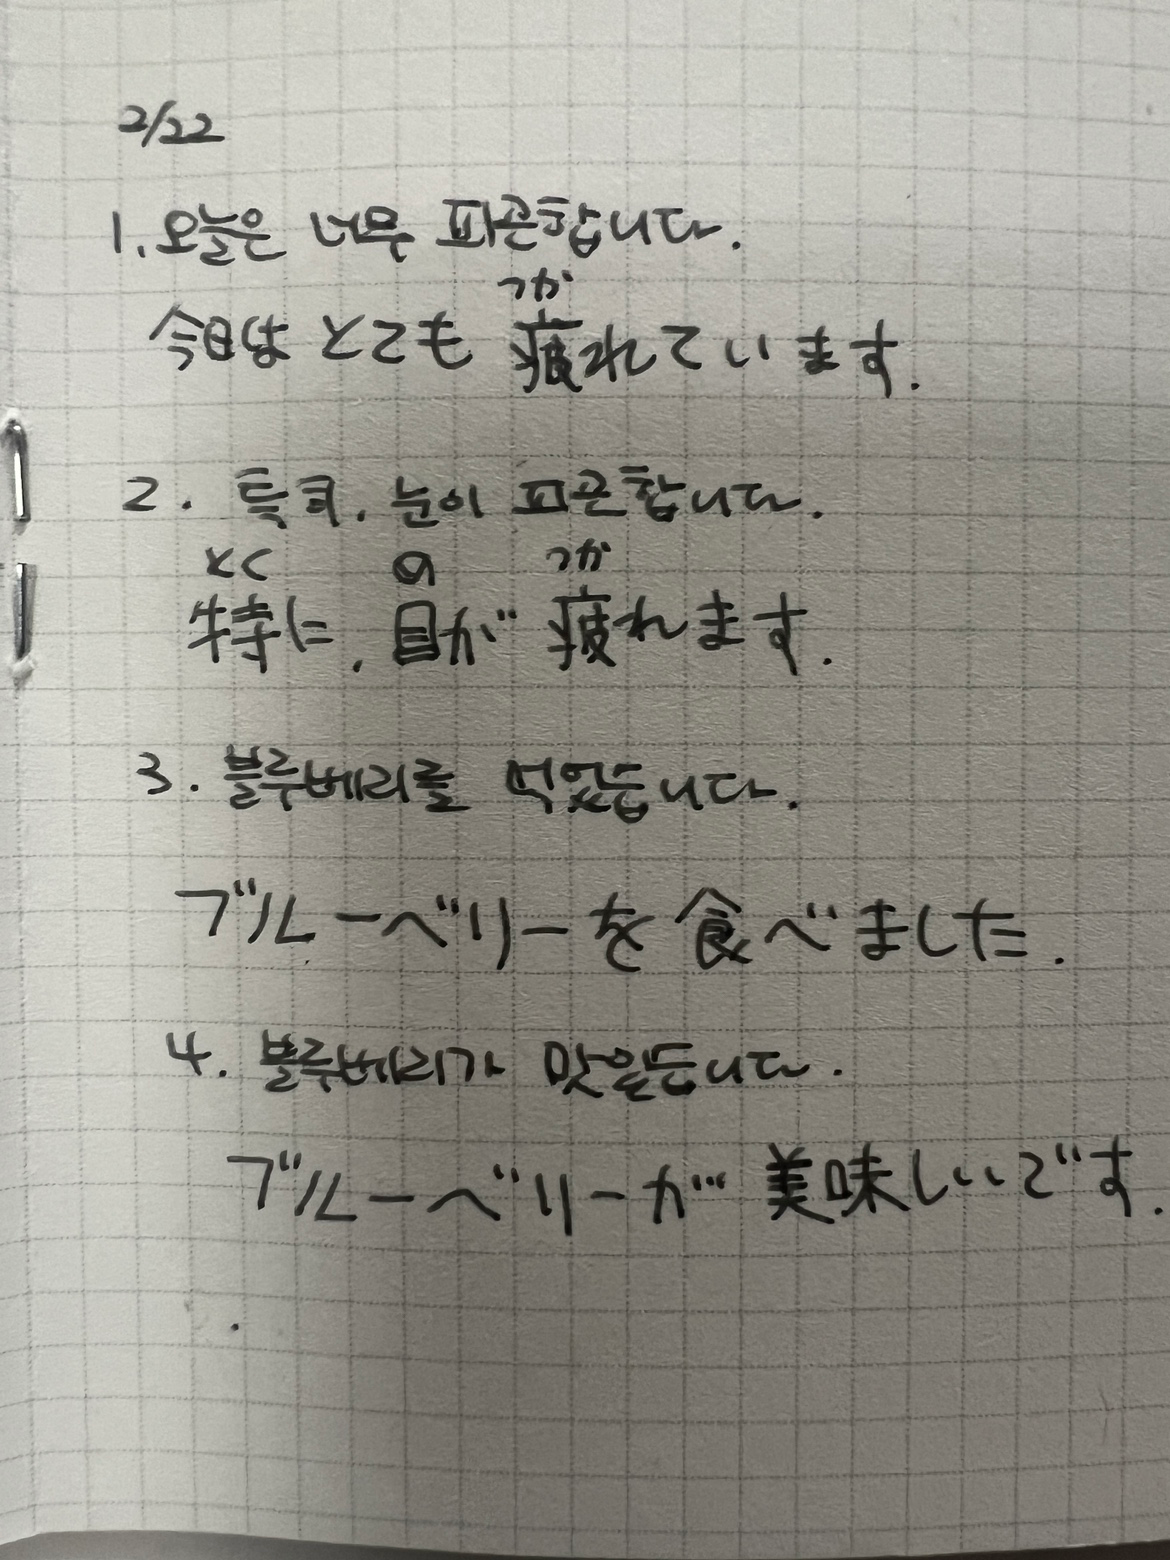 2/22
1. 오늘은 너무 피곤합니다.
つか
今日は とても 疲れています.
2. 특히, 눈이 피곤합니다.
とく の つか
特に, 目が 疲れます.
3. 블루베리를 먹었듭니다.
ブルーベリーを 食べました.
4. 블루베리가 맛일듭니다.
ブルーベリーが 美味しいです.